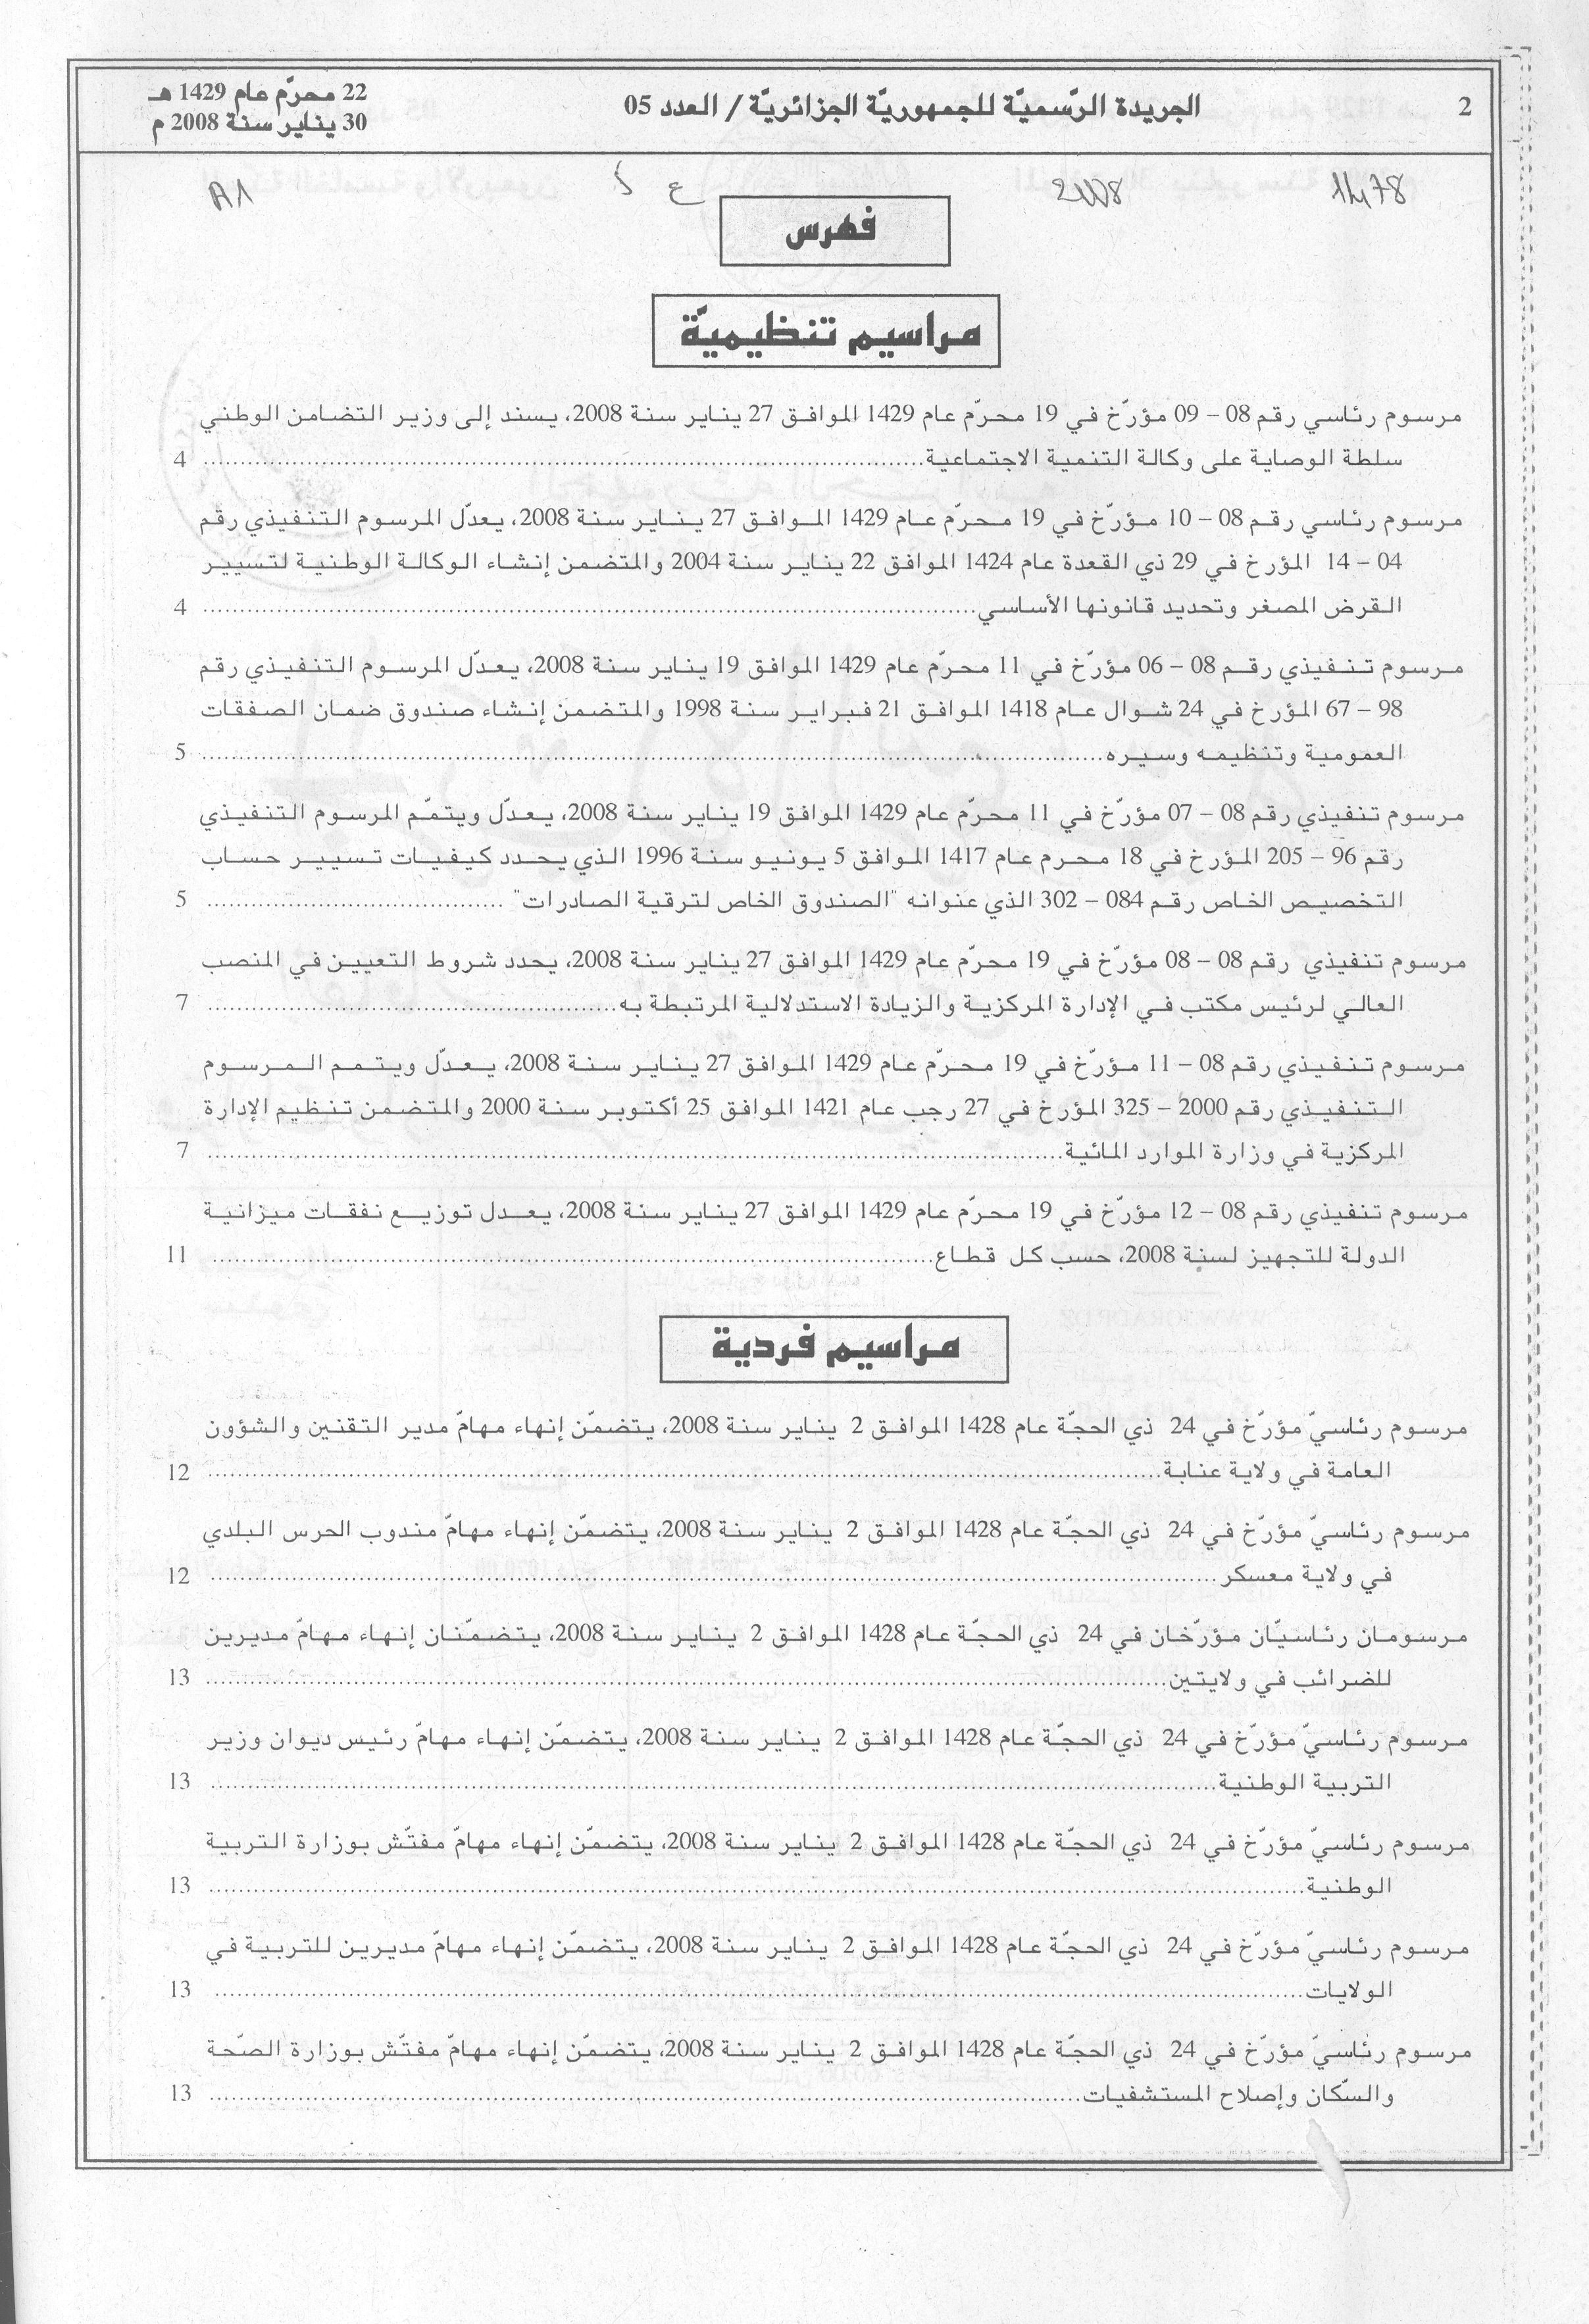 2
الجريدة الرّسميّة للجمهوريّة الجزائريّة / العدد 05
22 محرّم عام 1429 هـ
30 يناير سنة 2008 م
1478 2008 ع 5 A1
فهرس
مراسيم تنظيميّة
مرسوم رئاسي رقم 08 – 09 مؤرّخ في 19 محرّم عام 1429 الموافق 27 يناير سنة 2008، يسند إلى وزير التضامن الوطني
سلطة الوصاية على وكالة التنمية الاجتماعية........................ 4
مرسوم رئاسي رقم 08 – 10 مؤرّخ في 19 محرّم عام 1429 الموافق 27 يناير سنة 2008، يعدّل المرسوم التنفيذي رقم
04 – 14 المؤرخ في 29 ذي القعدة عام 1424 الموافق 22 يناير سنة 2004 والمتضمن إنشاء الوكالة الوطنية لتسيير
القرض المصغر وتحديد قانونها الأساسي........................ 4
مرسوم تنفيذي رقم 08 – 06 مؤرّخ في 11 محرّم عام 1429 الموافق 19 يناير سنة 2008، يعدّل المرسوم التنفيذي رقم
98 – 67 المؤرخ في 24 شوال عام 1418 الموافق 21 فبراير سنة 1998 والمتضمن إنشاء صندوق ضمان الصفقات
العمومية وتنظيمه وسيره........................ 5
مرسوم تنفيذي رقم 08 – 07 مؤرّخ في 11 محرّم عام 1429 الموافق 19 يناير سنة 2008، يعدّل ويتمّم المرسوم التنفيذي
رقم 96 – 205 المؤرخ في 18 محرم عام 1417 الموافق 5 يونيو سنة 1996 الذي يحدد كيفيات تسيير حساب
التخصيص الخاص رقم 084 – 302 الذي عنوانه "الصندوق الخاص لترقية الصادرات" ........................ 5
مرسوم تنفيذي رقم 08 – 08 مؤرّخ في 19 محرّم عام 1429 الموافق 27 يناير سنة 2008، يحدد شروط التعيين في المنصب
العالي لرئيس مكتب في الإدارة المركزية والزيادة الاستدلالية المرتبطة به........................ 7
مرسوم تنفيذي رقم 08 – 11 مؤرّخ في 19 محرّم عام 1429 الموافق 27 يناير سنة 2008، يعدّل ويتمم المرسوم
التنفيذي رقم 2000 – 325 المؤرخ في 27 رجب عام 1421 الموافق 25 أكتوبر سنة 2000 والمتضمن تنظيم الإدارة
المركزية في وزارة الموارد المائية........................ 7
مرسوم تنفيذي رقم 08 – 12 مؤرّخ في 19 محرّم عام 1429 الموافق 27 يناير سنة 2008، يعدل توزيع نفقات ميزانية
الدولة للتجهيز لسنة 2008، حسب كل قطاع........................ 11
مراسيم فردية
مرسوم رئاسيّ مؤرّخ في 24 ذي الحجّة عام 1428 الموافق 2 يناير سنة 2008، يتضمّن إنهاء مهامّ مدير التقنين والشؤون
العامة في ولاية عنابة........................ 12
مرسوم رئاسيّ مؤرّخ في 24 ذي الحجّة عام 1428 الموافق 2 يناير سنة 2008، يتضمّن إنهاء مهامّ مندوب الحرس البلدي
في ولاية معسكر........................ 12
مرسومان رئاسيّان مؤرّخان في 24 ذي الحجّة عام 1428 الموافق 2 يناير سنة 2008، يتضمّنان إنهاء مهامّ مديرين
للضرائب في ولايتين........................ 13
مرسوم رئاسيّ مؤرّخ في 24 ذي الحجّة عام 1428 الموافق 2 يناير سنة 2008، يتضمّن إنهاء مهامّ رئيس ديوان وزير
التربية الوطنية........................ 13
مرسوم رئاسيّ مؤرّخ في 24 ذي الحجّة عام 1428 الموافق 2 يناير سنة 2008، يتضمّن إنهاء مهامّ مفتّش بوزارة التربية
الوطنية........................ 13
مرسوم رئاسيّ مؤرّخ في 24 ذي الحجّة عام 1428 الموافق 2 يناير سنة 2008، يتضمّن إنهاء مهامّ مديرين للتربية في
الولايات........................ 13
مرسوم رئاسيّ مؤرّخ في 24 ذي الحجّة عام 1428 الموافق 2 يناير سنة 2008، يتضمّن إنهاء مهامّ مفتّش بوزارة الصّحة
والسّكان وإصلاح المستشفيات........................ 13